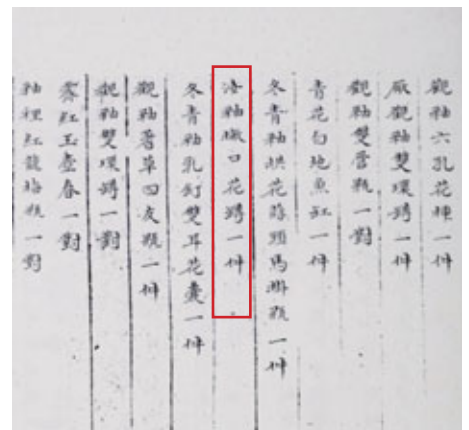 觀釉六孔花插一件
厰觀釉雙環罇一件
觀釉雙管瓶一對
青花白地魚缸一件
冬青釉拱花蒜頭馬掛瓶一件
釉口花罇一件
冬青釉乳釘雙耳花囊一件
觀釉蓍草四方瓶一件
觀釉雙環罇一對
霽紅玉壺春一對
釉裡紅龍梅瓶一對